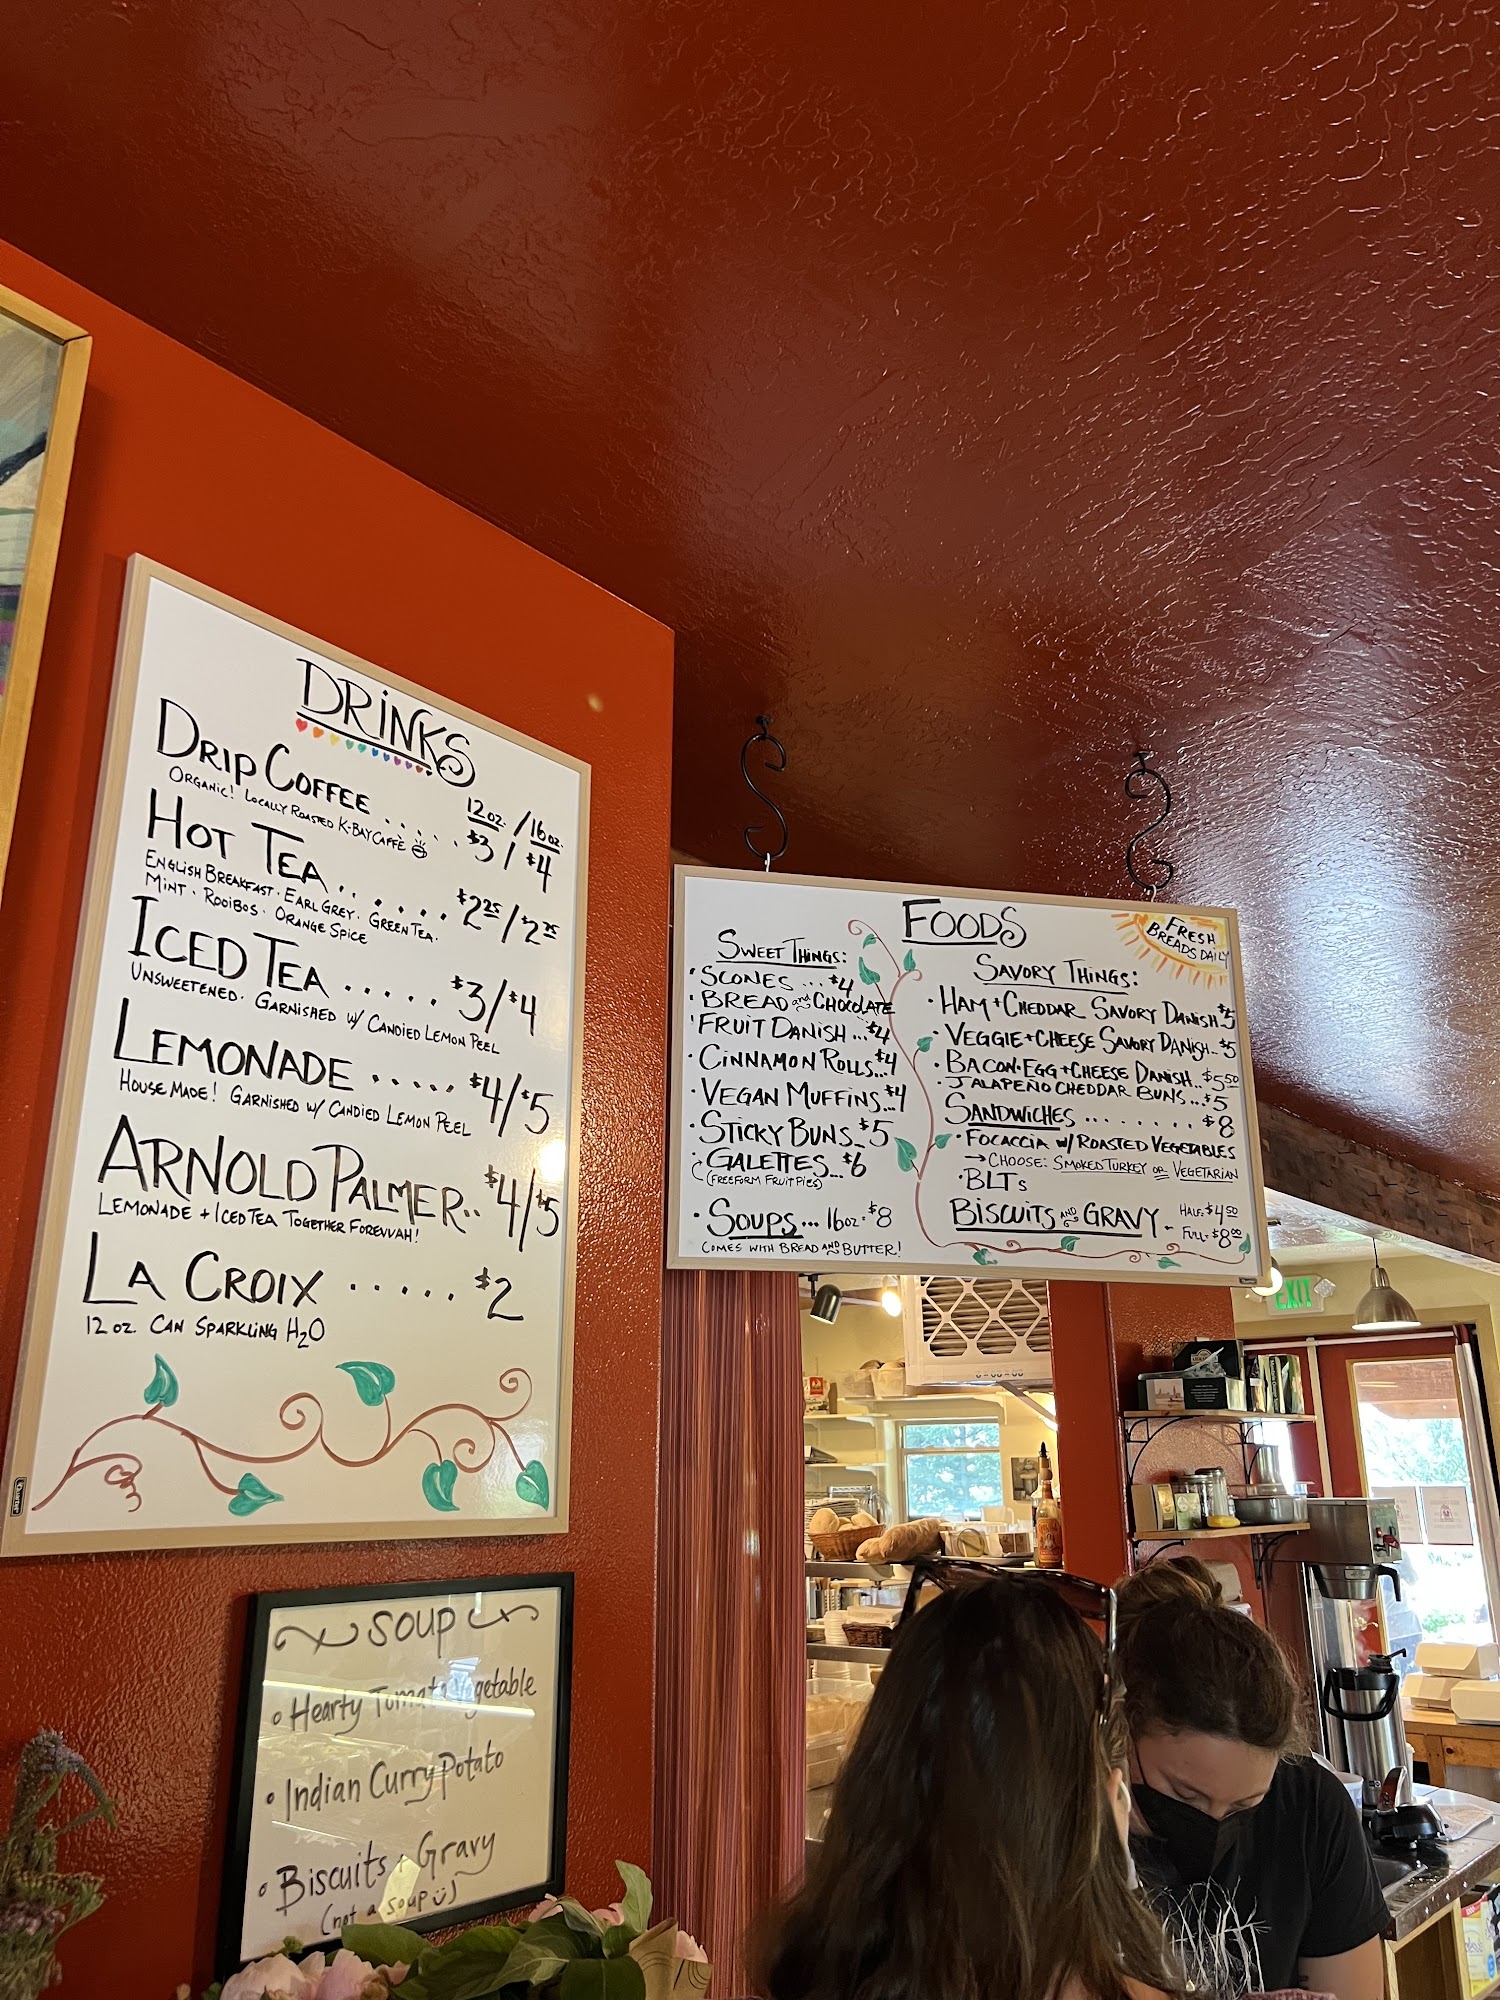 DRINKS
12 oz. / 16 oz.
DRIP COFFEE ..... $3 / $4
ORGANIC! LOCALLY ROASTED K-BAY CAFFÈ
HOT TEA....... $2 25 / $2 75
ENGLISH BREAKFAST · EARL GREY · GREEN TEA ·
MINT · ROOIBOS · ORANGE SPICE
ICED TEA ..... $3/$4
UNSWEETENED · GARNISHED W/ CANDIED LEMON PEEL
LEMONADE ..... $4/$5
HOUSE MADE! GARNISHED W/ CANDIED LEMON PEEL
ARNOLD PALMER.. $4/$5
LEMONADE + ICED TEA TOGETHER FOREVVAH!
LA CROIX ..... $2
12 oz. CAN SPARKLING H2O
Quartet
SOUP
Hearty Tomato Vegetable
Indian Curry Potato
Biscuits + Gravy
(not a soup ü)
FOODS
SWEET THINGS:
· SCONES ... $4
· BREAD and CHOCOLATE
· FRUIT DANISH ... $4
· CINNAMON ROLLS...$4
· VEGAN MUFFINS...$4
· STICKY BUNS.. $5
· GALETTES... $6
(FREEFORM FRUIT PIES)
· SOUPS... 16oz · $8
COMES WITH BREAD AND BUTTER!
FRESH
BREADS DAILY
SAVORY THINGS:
· HAM + CHEDDAR SAVORY DANISH $5
· VEGGIE + CHEESE SAVORY DANISH.. $5
· BACON·EGG + CHEESE DANISH.. $5 50
· JALAPEÑO CHEDDAR BUNS ... $5
SANDWICHES ........ $8
· FOCACCIA W/ ROASTED VEGETABLES
→ CHOOSE: SMOKED TURKEY OR VEGETARIAN
· BLTS
BISCUITS AND GRAVY - HALF: $4 50
FULL: $8 00
EXIT